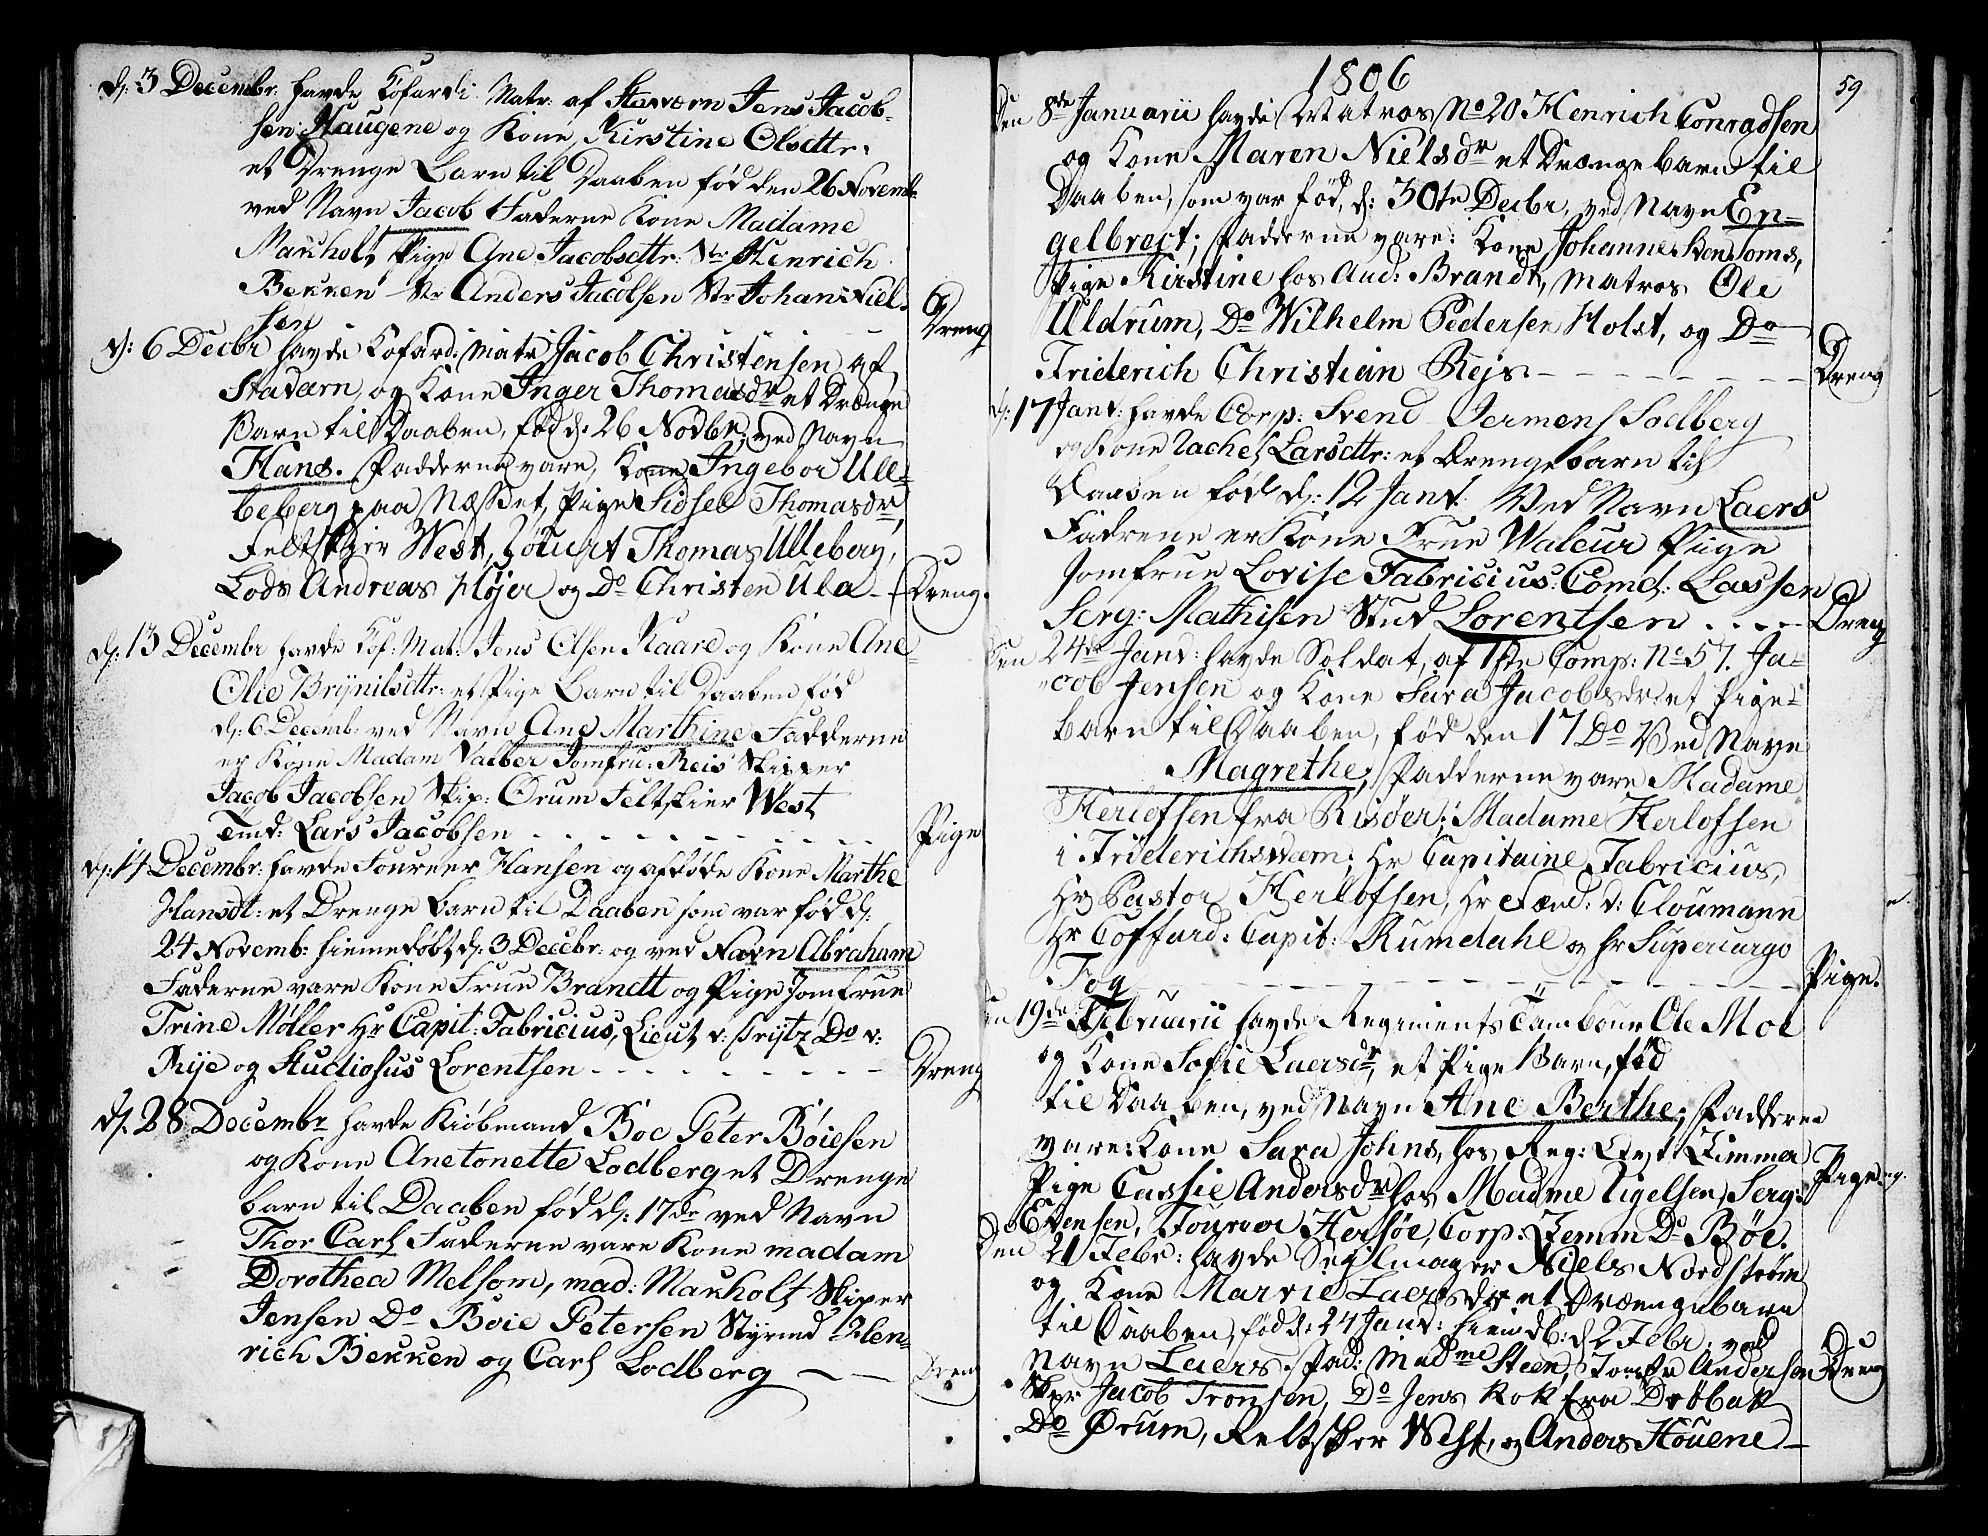 d: 3 Decembr: havde Kofardi Matr: af Staværn Jens Jacob-
sen Haugene og Kone Kirstine Olsdttr:
et Drenge Barn til Daaben fød den 26 Novemb:
ved Navn Jacob Faderne Kone Madame
Marholt Pige Ane Jacobsdttr: Str Henrich
Bekken Str Anders Jacobsen Str Johan Niel-
sen
Dreng
d: 6 Decbr havde Kofard: Matr Jacob Christensen af
Staværn, og Kone Inger Thomasdr et Drænge
Barn til Daaben, fød d: 26 Novbr, ved Navn
Hans. Fadderne vare, Kone Ingebor Ull-
beberg paa Næsset, Pige Sidsel Thomasdr,
Feltskier West, Thomas Ulleberg,
Lods Andreas Højer og Do Christen Ula
Dreng.
d: 13 Decembr havde Kof: Mat: Jens Olsen Kaare og Kone Ane
Olie Brynilsdttr: et Pige Barn til Daaben fød
d: 6 Decemb: ved Navn Ane Marthine Fadderne
er Kone Madam Valber Jomfru: Reis Skipper
Jacob Jacobsen Skip: Ørum Feltskier West
Tmd: Lars Jacobsen
Pige
d: 14 Decembr: havde Foureer Hansen og afdøde Kone Marthe
Hansdt: et Drenge Barn til Daaben som var fød d:
24 Novemb: hiemedøbt d: 3 Decebr: og ved Navn Abraham
Faderne vare Kone Frue Brandt og Pige Jomfrue
Trine Møller Hr Capit: Fabricius, Lieut v: Prytz Do v:
Rije og Studiosus Lorentsen
Dreng
d: 28 Decembr havde Kiøbmand Boe Peter Bøiesen
og Kone Anetonette Lodberg et Drenge
barn til Daaben fød d: 17de ved Navn
Thor Carl Faderne vare Kone madam
Dorothea Melsom, mad: Marholt Skiper
Jensen Do Boie Petersen Styrmd Hen-
rich Bekken og Carl Lodberg
Dreng
1806
59
Den 8de Januarii havde Matros No 20 Henrich Conradsen
og Kone Maren Nielsdr et Drænge barn til
Daaben, som var fød, d: 30te Decbr, ved Navn En-
gelbregt; Fadderne vare: Kone Johanne Soms,
Pige Kirstine hos Aud: Brandt, Matros Ole
Uldrum, Do Wilhelm Pedersen Holst, og Do
Friderich Christian Rejs
Dreng
d: 17 Janv: havde Corp: Svend Jermens Sodberg
og Kone Rachel Larsdttr: et Drenge barn til
Daaben fød d: 12 Janv: Ved Navn Laers
Fadrene er Kone Frue Waleur Pige
Jomfrue Lovise Fabricius: Comd: Lassen
Serg: Mathisen Stud Lorentsen
Dreng
Den 24de Janv: havde Soldat, af 1ste Comp: No 57. Ja-
cob Jensen og Kone Sara Jacobsdr: et Pige-
barn til Daaben, fød den 17 Do Ved Navn
Magrethe; Fadderne vare Madame
Herlofsen fra Risøer; Madame Herlofsen
i Friderichsværn; Hr Capitaine Fabricius,
Hr Pastor Herlofsen, Hr Fænd: v: Cloumann
Hr Coffard: Capit: Rumdahl og Hr Supercargo
Fog
Pige.
Den 19de Februarii havde Regiments Tambour Ole Moe
og Kone Sofie Laersdr, et Pige Barn, fød
til Daaben, ved Navn Ane Berthe; Fadderne
vare: Kone Sara Johns, hos Reg: Zimmer
Pige Cassie Andersdr hos Madme Tigelsen, Serg:
Evensen, Fourer Hersøe, Corp: Zemm Do Bøe.
Pige
Den 21 Febr: havde Seglmager Niels Nordstrøm
og Kone Marvie Laersdr et Drængebarn
til Daaben, fød d: 24 Janv: hiem db: d 2 Febr: ved
Navn Laers. Fad: Madme Steen, Jomfr Andersen
Dreng
Skpr Jacob Tronsen, Do Jens Kok fra Drøbak
Do Ørum, Feltsker West, og Anders Houene